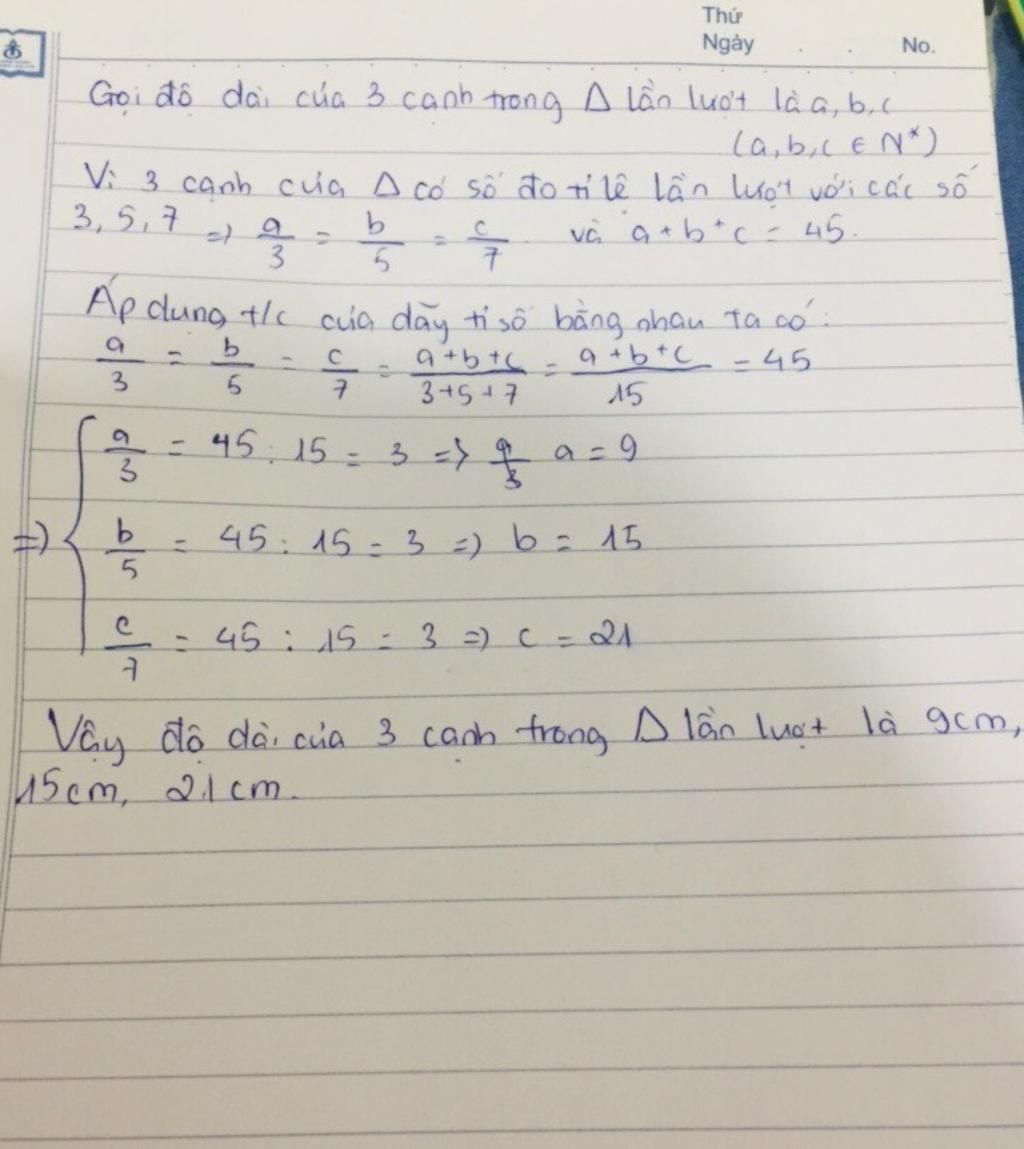 Thứ
Ngày . . No.
Gọi độ dài của 3 cạnh trong Δ lần lượt là a, b, c
(a, b, c ∈ N*)
Vì 3 cạnh của Δ có số đo tỉ lệ lần lượt với các số
3, 5, 7 => a/3 = b/5 = c/7 và a + b + c = 45.
Áp dung t/c của dãy tỉ số bằng nhau ta có:
a/3 = b/5 = c/7 = (a+b+c)/(3+5+7) = (a+b+c)/15 = 45
a/3 = 45 : 15 = 3 => a/3 a = 9
=> { b/5 = 45 : 15 = 3 => b = 15
c/7 = 45 : 15 = 3 => c = 21
Vậy độ dài của 3 cạnh trong Δ lần lượt là 9cm,
15cm, 21cm.